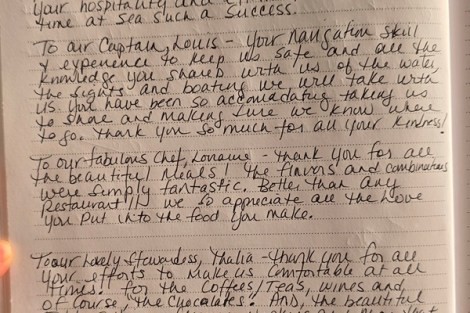 your hospitality and
time at Sea such a success.
To our Captain, Louis - your navigation skill
& experience to keep us safe and all the
knowledge you shared with us of the water
the sights and boating we will take with
us. You have been so accomadating taking us
to shore and making sure we know where
to go. Thank you so much for all your kindness!
To our fabulous Chef, Lorraine - thank you for all
the beautiful meals! The flavors and combinations
were simply fantastic. Better than any
Restaurant!! We so appreciate all the love
you put into the food you make.
To our lovely Stewardess, Thalia - thank you for all
your efforts to make us comfortable at all
times! For the Coffees/Teas, wines and,
of course, the Chocolates! And, the beautiful